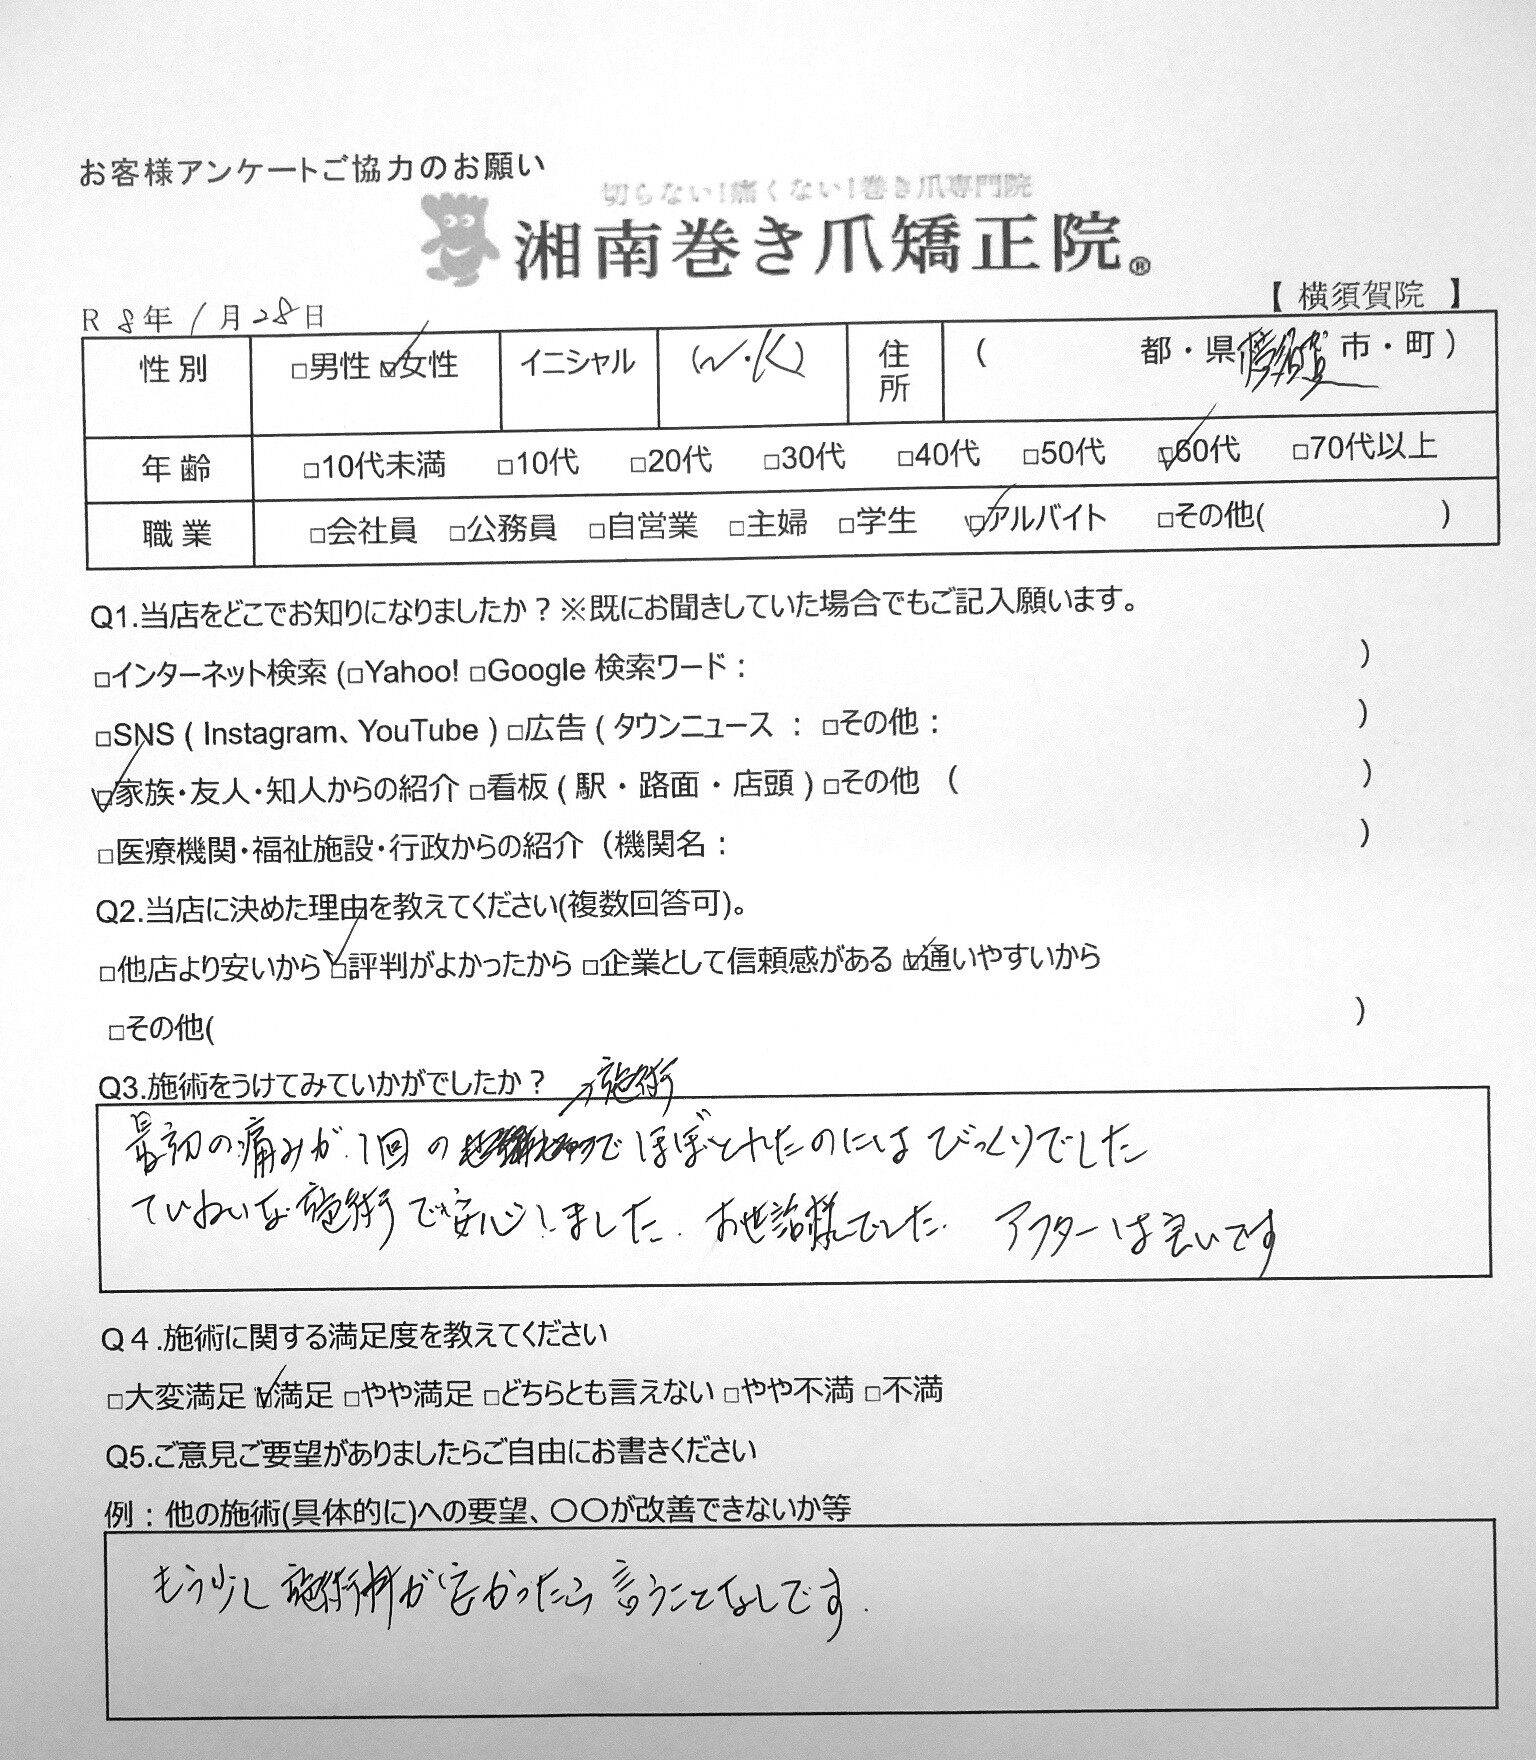 お客様アンケートご協力のお願い
切らない!痛くない!巻き爪専門院
湘南巻き爪矯正院®
【 横須賀院 】
R 8年 1月 28日
性別 □男性 ☑女性 イニシャル (N・K) 住所 ( 都・県 横須賀 市・町 )
年齢 □10代未満 □10代 □20代 □30代 □40代 □50代 ☑60代 □70代以上
職業 □会社員 □公務員 □自営業 □主婦 □学生 ☑アルバイト □その他( )
Q1.当店をどこでお知りになりましたか?※既にお聞きしていた場合でもご記入願います。
□インターネット検索 (□Yahoo! □Google 検索ワード: )
□SNS ( Instagram、YouTube ) □広告 ( タウンニュース : □その他: )
☑家族・友人・知人からの紹介 □看板 ( 駅・路面・店頭 ) □その他 ( )
□医療機関・福祉施設・行政からの紹介 (機関名: )
Q2.当店に決めた理由を教えてください(複数回答可)。
□他店より安いから ☑評判がよかったから □企業として信頼感がある ☑通いやすいから
□その他( )
Q3.施術をうけてみていかがでしたか?
施術
最初の痛みが、1回の でほぼとれたのにはびっくりでした
ていねいな施術で安心しました. お世話様でした. アフターは良いです
Q4.施術に関する満足度を教えてください
□大変満足 ☑満足 □やや満足 □どちらとも言えない □やや不満 □不満
Q5.ご意見ご要望がありましたらご自由にお書きください
例:他の施術(具体的に)への要望、〇〇が改善できないか等
もう少し施術料が安かったら言うことなしです.